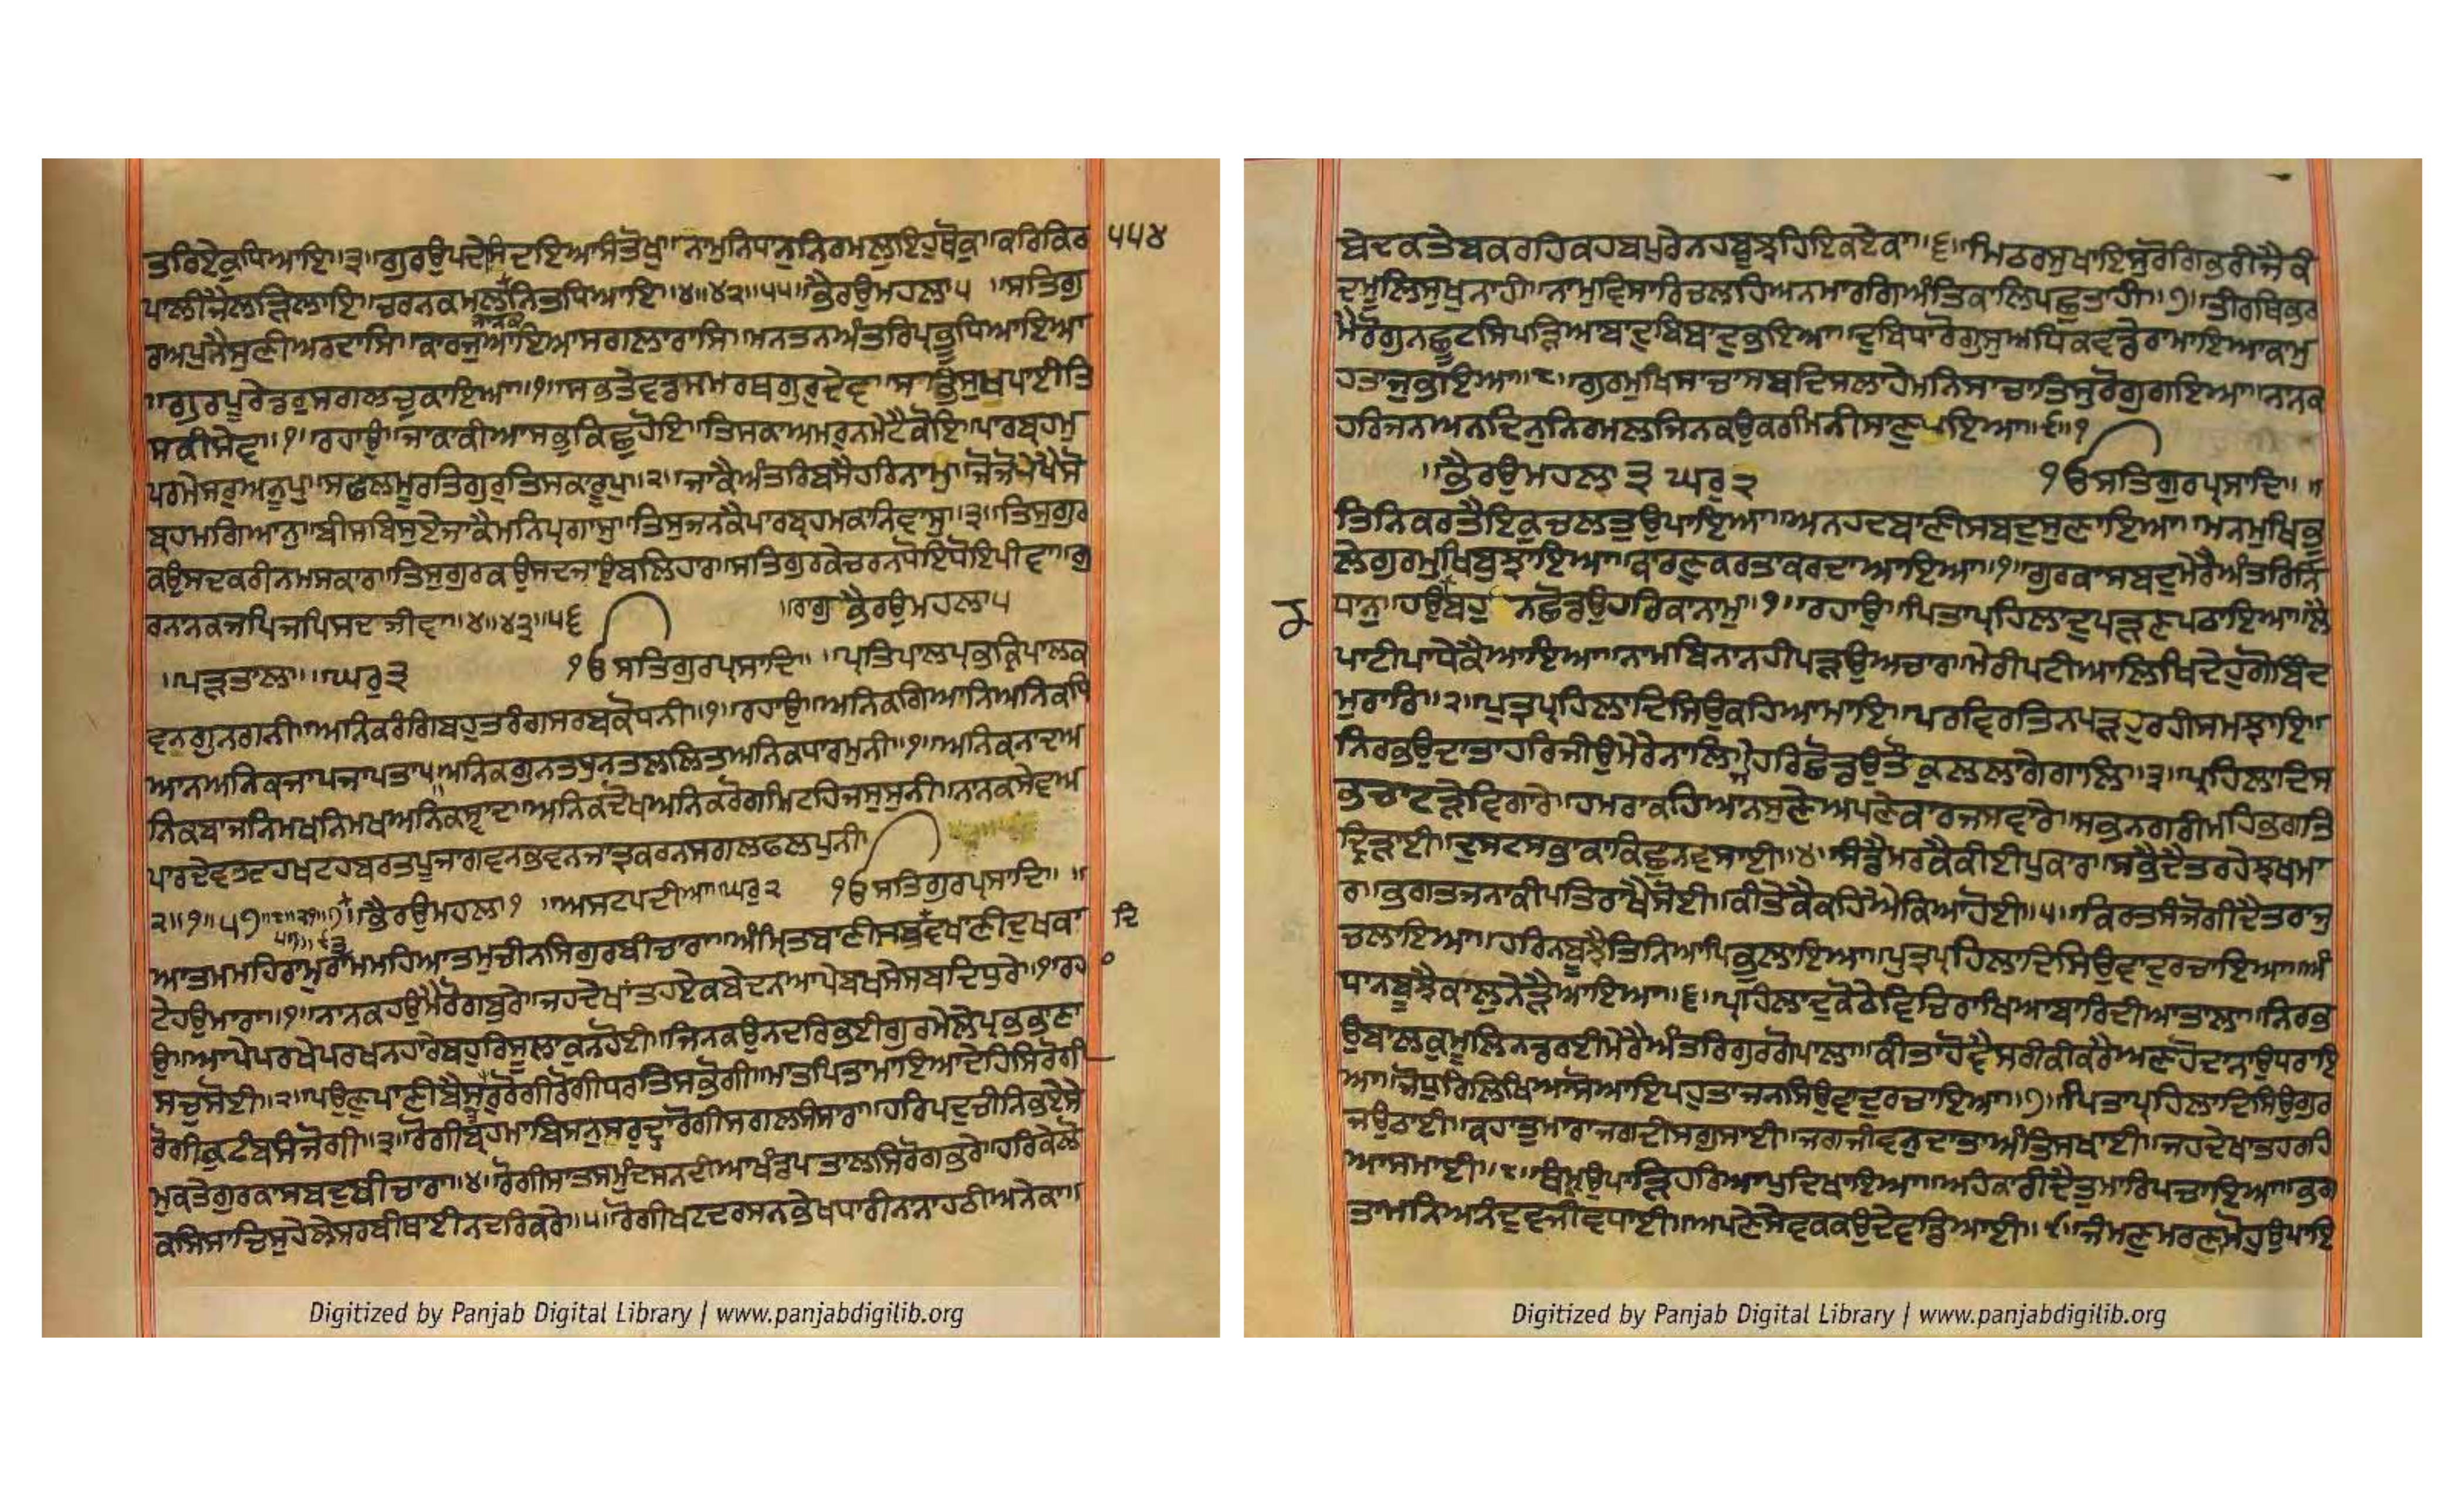 ਤਰਿਏਕੁਧਿਆਇ॥੩॥ਗੁਰਉਪਦੇਸਿਦਇਆਸੰਤੋਖੁ॥ਨਾਮੁਨਿਧਾਨੁਨਿਰਮਲੁਇਹੁਥੋਕੁ॥ਕਰਿਕਿਰ ੫੫੪
ਪਾਲੀਜੈਲੜਿਲਾਇ॥ਚਰਨਕਮਲਨਿਤਧਿਆਇ॥੪॥੪੨॥੫੫॥ਭੈਰਉਮਹਲਾ੫ ॥ਸਤਿਗੁ
ਨਾਨਕ
ਰਅਪੁਨੈਸੁਣੀਅਰਦਾਸਿ॥ਕਾਰਜੁਆਇਆਸਗਲਾਰਾਸਿ॥ਮਨਤਨਅੰਤਰਿਪ੍ਰਭੂਧਿਆਇਆ
॥ਗੁਰਪੂਰੇਡਰੁਸਗਲਚੁਕਾਇਆ॥੧॥ਸਭਤੇਵਡਸਮਰਥਗੁਰੁਦੇਵ॥ਸਭਿਸੁਖਪਾਈਤਿ
ਸਕੀਸੇਵ॥੧॥ਰਹਾਉ॥ਜਾਕਾਕੀਆਸਭੁਕਿਛੁਹੋਇ॥ਤਿਸਕਾਅਮਰੁਨਮੇਟੈਕੋਇ॥ਪਾਰਬ੍ਰਹਮੁ
ਪਰਮੇਸਰੁਅਨੂਪੁ॥ਸਫਲਮੂਰਤਿਗੁਰੁਤਿਸਕਾਰੂਪੁ॥੨॥ਜਾਕੈਅੰਤਰਿਬਸੈਹਰਿਨਾਮੁ॥ਜੋਜੋਪੇਖੈਸੋ
ਬ੍ਰਹਮਗਿਆਨੁ॥ਬੀਸਬਿਸੁਏਜਾਕੈਮਨਿਪ੍ਰਗਾਸੁ॥ਤਿਸੁਜਨਕੈਪਾਰਬ੍ਰਹਮਕਾਨਿਵਾਸੁ॥੩॥ਤਿਸੁਗੁਰ
ਕਉਸਦਕਰੀਨਮਸਕਾਰ॥ਤਿਸੁਗੁਰਕਉਸਦਜਾਉਬਲਿਹਾਰ॥ਸਤਿਗੁਰਕੇਚਰਨਧੋਇਧੋਇਪੀਵਾ॥ਗੁ
ਰਨਾਨਕਜਪਿਜਪਿਸਦਜੀਵਾ॥੪॥੪੩॥੫੬ ॥ਰਾਗੁਭੈਰਉਮਹਲਾ੫
॥ਪੜਤਾਲਾ॥ਘਰੁ੩ ੴਸਤਿਗੁਰਪ੍ਰਸਾਦਿ॥ ॥ਪ੍ਰਤਿਪਾਲਪ੍ਰਭਕ੍ਰਿਪਾਲਕ
ਵਨਗੁਨਗਨੀ॥ਅਨਿਕਰੰਗਿਬਹੁਤਰੰਗਸਰਬਕੋਧਨੀ॥੧॥ਰਹਾਉ॥ਅਨਿਕਗਿਆਨਿਅਨਿਕਧਿ
ਆਨਅਨਿਕਜਾਪਜਾਪਤਾਪ॥ਅਨਿਕਗੁਨਤਧੁਨਤਲਲਿਤਅਨਿਕਧਾਰਮੁਨੀ॥੧॥ਅਨਿਕਨਾਦਅ
ਨਿਕਬਾਜਨਿਮਖਨਿਮਖਅਨਿਕਸ੍ਵਾਦ॥ਅਨਿਕਦੋਖਅਨਿਕਰੋਗਮਿਟਹਿਜਸੁਸੁਨੀ॥ਨਾਨਕਸੇਵਅ
ਪਾਰਦੇਵਤਟਹਖਟਹਬਰਤਪੂਜਾਗਵਨਭਵਨਜਾਤ੍ਰਕਰਨਸਗਲਫਲਪੁਨੀ
੨॥੧॥੫੭॥੮॥੨੧॥੭॥ ਭੈਰਉਮਹਲਾ੧ ॥ਅਸਟਪਦੀਆ॥ਘਰੁ੨ ੴਸਤਿਗੁਰਪ੍ਰਸਾਦਿ॥ ॥
ਆਤਮਮਹਿਰਾਮੁਰਾਮਮਹਿਆਤਮੁਚੀਨਸਿਗੁਰਬੀਚਾਰਾ॥ਅੰਮ੍ਰਿਤਬਾਣੀਸਬਦਵਖਾਣੀਦੁਖਕਾ ਦਿ
ਟੇਹਉਮਾਰਾ॥੧॥ਨਾਨਕਹਉਮੈਰੋਗਬੁਰੇ॥ਜਹਦੇਖਾਂਤਹਏਕਬੇਦਨਾਆਪੇਬਖਸੇਸਬਦਿਧੁਰੇ॥੧॥ਰਹਾ
ਉ॥ਆਪੇਪਰਖੇਪਰਖਨਹਾਰੇਬਹੁਰਿਸੂਲਾਕੁਨਹੋਈ॥ਜਿਨਕਉਨਦਰਿਭਈਗੁਰਮੇਲੇਪ੍ਰਭਭਾਣਾ
ਸਚੁਸੋਈ॥੨॥ਪਉਣੁਪਾਣੀਬੈਸੰਤਰੁਰੋਗੀਰੋਗੀਧਰਤਿਸਭੋਗੀ॥ਮਾਤਪਿਤਾਮਾਇਆਦੇਹਿਸਿਰੋਗੀ
ਰੋਗੀਕੁਟੰਬਸੰਜੋਗੀ॥੩॥ਰੋਗੀਬ੍ਰਹਮਾਬਿਸਨੁਸਰੁਦ੍ਰਾਰੋਗੀਸਗਲਸੰਸਾਰਾ॥ਹਰਿਪਦੁਚੀਨਿਭਏਸੇ
ਮੁਕਤੇਗੁਰਕਾਸਬਦੁਬੀਚਾਰਾ॥੪॥ਰੋਗੀਸਾਤਸਮੁੰਦਸਨਦੀਆਖੰਡਪਤਾਲਸਿਰੋਗਭਰੇ॥ਹਰਿਕੇਲੋ
ਕਸਿਸਾਚਿਸੁਹੇਲੇਸਰਬੀਥਾਈਨਦਰਿਕਰੇ॥੫॥ਰੋਗੀਖਟਦਰਸਨਭੇਖਧਾਰੀਨਾਨਾਹਠੀਅਨੇਕਾ॥
Digitized by Panjab Digital Library | www.panjabdigilib.org
ਬੇਦਕਤੇਬਕਰਹਿਕਹਬਪੁਰੇਨਹਬੂਝਹਿਇਕਏਕਾ॥੬॥ਮਿਠਰਸੁਖਾਇਸੁਰੋਗਿਭਰੀਜੈਕੰ
ਦਮੂਲਿਸੁਖੁਨਾਹੀ॥ਨਾਮੁਵਿਸਾਰਿਚਲਹਿਅਨਮਾਰਗਿਅੰਤਕਾਲਿਪਛੁਤਾਹੀ॥੭॥ਤੀਰਥਿਭਰ
ਮੈਰੋਗੁਨਛੂਟਸਿਪੜਿਆਬਾਦੁਬਿਬਾਦੁਭਇਆ॥ਦੁਬਿਧਾਰੋਗੁਸੁਅਧਿਕਵਡੇਰਾਮਾਇਆਕਾਮੁ
ਹਤਾਜੁਭਇਆ॥੮॥ਗੁਰਮੁਖਿਸਾਚਾਸਬਦਿਸਲਾਹੇਮਨਿਸਾਚਾਤਿਸੁਰੋਗੁਗਇਆ॥ਨਾਨਕ
ਹਰਿਜਨਅਨਦਿਨੁਨਿਰਮਲਜਿਨਕਉਕਰਮਿਨੀਸਾਣੁਪਇਆ॥੯॥੧
॥ਭੈਰਉਮਹਲਾ੩ ਘਰੁ੨ ੴਸਤਿਗੁਰਪ੍ਰਸਾਦਿ॥ ॥
ਤਿਨਿਕਰਤੈਇਕੁਚਲਤੁਉਪਾਇਆ॥ਅਨਹਦਬਾਣੀਸਬਦੁਸੁਣਾਇਆ॥ਮਨਮੁਖਿਭੂ
ਲੇਗੁਰਮੁਖਿਬੁਝਾਇਆ॥ਕਾਰਣੁਕਰਤਾਕਰਦਾਆਇਆ॥੧॥ਗੁਰਕਾਸਬਦੁਮੇਰੈਅੰਤਰਿਧਿ
ਧਾਨੁ॥ਹਉਬਹੁ ਨਛੋਡਉਹਰਿਕਾਨਾਮੁ॥੧॥ਰਹਾਉ॥ਪਿਤਾਪ੍ਰਹਿਲਾਦੁਪੜਣਪਠਾਇਆ॥ਲੈ
ਪਾਟੀਪਾਧੇਕੈਆਇਆ॥ਨਾਮਬਿਨਾਨਹੀਪੜਉਅਚਾਰ॥ਮੇਰੀਪਟੀਆਲਿਖਿਦੇਹੁਗੋਬਿੰਦ
ਮੁਰਾਰਿ॥੨॥ਪੁਤ੍ਰਪ੍ਰਹਿਲਾਦਿਸਿਉਕਹਿਆਮਾਇ॥ਪਰਵਿਰਤਿਨਪੜਹੁਰਹੀਸਮਝਾਇ॥
ਨਿਰਭਉਦਾਤਾਹਰਿਜੀਉਮੇਰੇਨਾਲਿ॥ਜੇਹਰਿਛੋਡਉਤੋਕੁਲਲਾਗੇਗਾਲਿ॥੩॥ਪ੍ਰਹਿਲਾਦਿਸ
ਭਚਾਟੜੇਵਿਗਾਰੇ॥ਹਮਰਾਕਹਿਆਨਸੁਣੇਅਪਣੇਕਾਰਜਸਵਾਰੇ॥ਸਭਨਗਰੀਮਹਿਭਗਤਿ
ਦ੍ਰਿੜਾਈ॥ਦੁਸਟਸਭਾਕਾਕਿਛੁਨਵਸਾਈ॥੪॥ਸੰਡੈਮਰਕੈਕੀਈਪੁਕਾਰ॥ਸਭੇਦੈਤਰਹੇਝਖਮਾ
ਰ॥ਭਗਤਜਨਾਕੀਪਤਿਰਾਖੈਸੋਈ॥ਕੀਤੇਕੈਕਹਿਐਕਿਆਹੋਈ॥੫॥ਕਿਰਤਸੰਜੋਗੀਦੈਤਰਾਜੁ
ਚਲਾਇਆ॥ਹਰਿਨਬੂਝੈਤਿਨਿਆਪਿਭੁਲਾਇਆ॥ਪੁਤ੍ਰਪ੍ਰਹਿਲਾਦਿਸਿਉਵਾਦੁਰਚਾਇਆ॥ਅੰ
ਧਾਨਬੂਝੈਕਾਲੁਨੇੜੈਆਇਆ॥੬॥ਪ੍ਰਹਿਲਾਦੁਕੋਠੇਵਿਚਿਰਾਖਿਆਬਾਰਿਦੀਆਤਾਲਾ॥ਨਿਰਭ
ਉਬਾਲਕੁਮੂਲਿਨਡਰਈਮੇਰੈਅੰਤਰਿਗੁਰਗੋਪਾਲਾ॥ਕੀਤਾਹੋਵੈਸਰੀਕੀਕਰੈਅਣਹੋਦਾਨਾਉਧਰਾਇ
ਆ॥ਜੋਧੁਰਿਲਿਖਿਆਸੋਆਇਪਹੁਤਾਜਨਸਿਉਵਾਦੁਰਚਾਇਆ॥੭॥ਪਿਤਾਪ੍ਰਹਿਲਾਦਿਸਿਉਗੁਰ
ਜਉਠਾਈ॥ਕਹਾਤੁਮਾਰਾਜਗਦੀਸਗੁਸਾਈ॥ਜਗਜੀਵਨੁਦਾਤਾਅੰਤਿਸਖਾਈ॥ਜਹਦੇਖਾਤਹਰਹਿ
ਆਸਮਾਈ॥੮॥ਥੰਮੁਉਪਾੜਿਹਰਿਆਪੁਦਿਖਾਇਆ॥ਅਹੰਕਾਰੀਦੈਤੁਮਾਰਿਪਚਾਇਆ॥ਭਗ
ਤਾਮਨਿਅਨੰਦੁਵਜੀਵਧਾਈ॥ਅਪਣੇਸੇਵਕਕਉਦੇਵਡਿਆਈ॥੯॥ਜੰਮਣੁਮਰਣੁਮੋਹੁਉਪਾਇ
Digitized by Panjab Digital Library | www.panjabdigilib.org